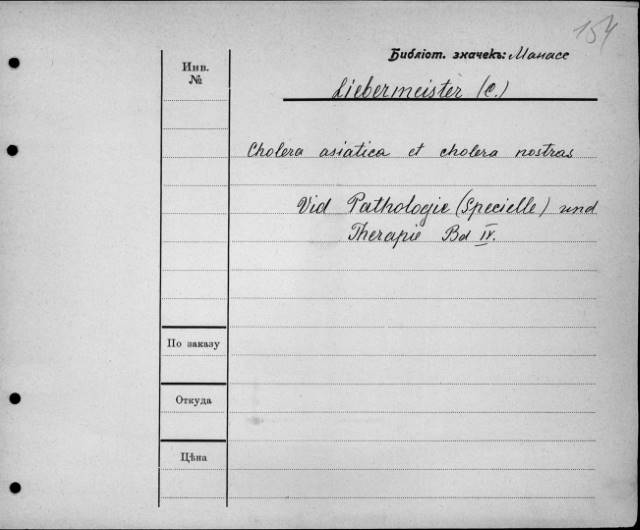 154
Библіот. значекъ: Манасс
Инв.
№
Liebermeister (C.)
Cholera asiatica et cholera nostras
Vid Pathologie (Specielle) und
Therapie Bd IV.
По заказу
Откуда
Цѣна